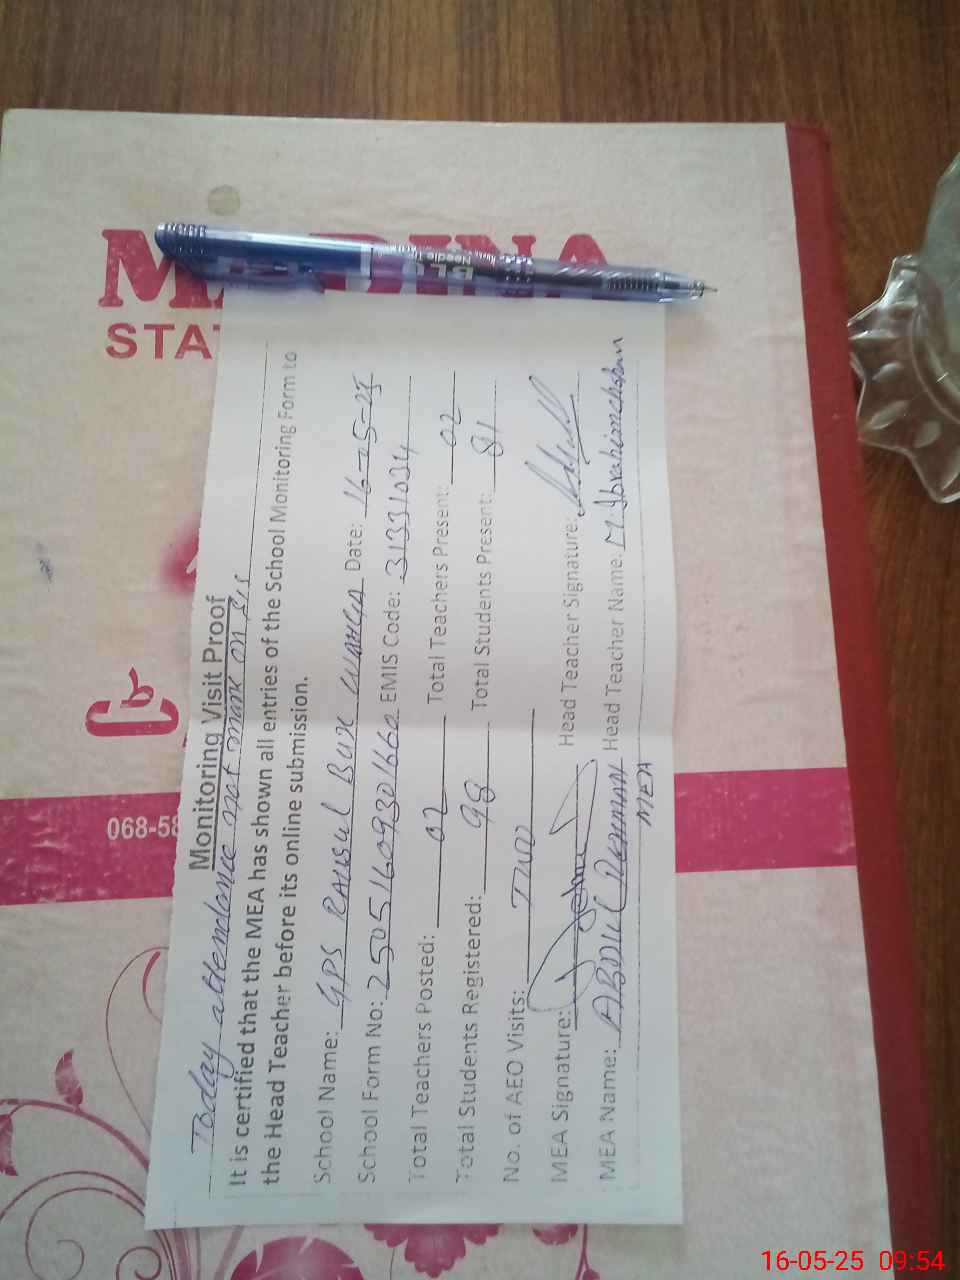 MADINA
STAT
068-58
BLU
Needle
Monitoring Visit Proof
Today attendance not mark on SIS
It is certified that the MEA has shown all entries of the School Monitoring Form to
the Head Teacher before its online submission.
School Name: GPS RAUSUL BUX WAHGA Date: 16-05-25
School Form No: 2505160930166 EMIS Code: 31331034
Total Teachers Posted: 02 Total Teachers Present: 02
Total Students Registered: 98 Total Students Present: 81
No. of AEO Visits: TWO
MEA Signature: Head Teacher Signature:
MEA Name: ABDUL REHMAN Head Teacher Name: M.
MEA
16-05-25 09:54